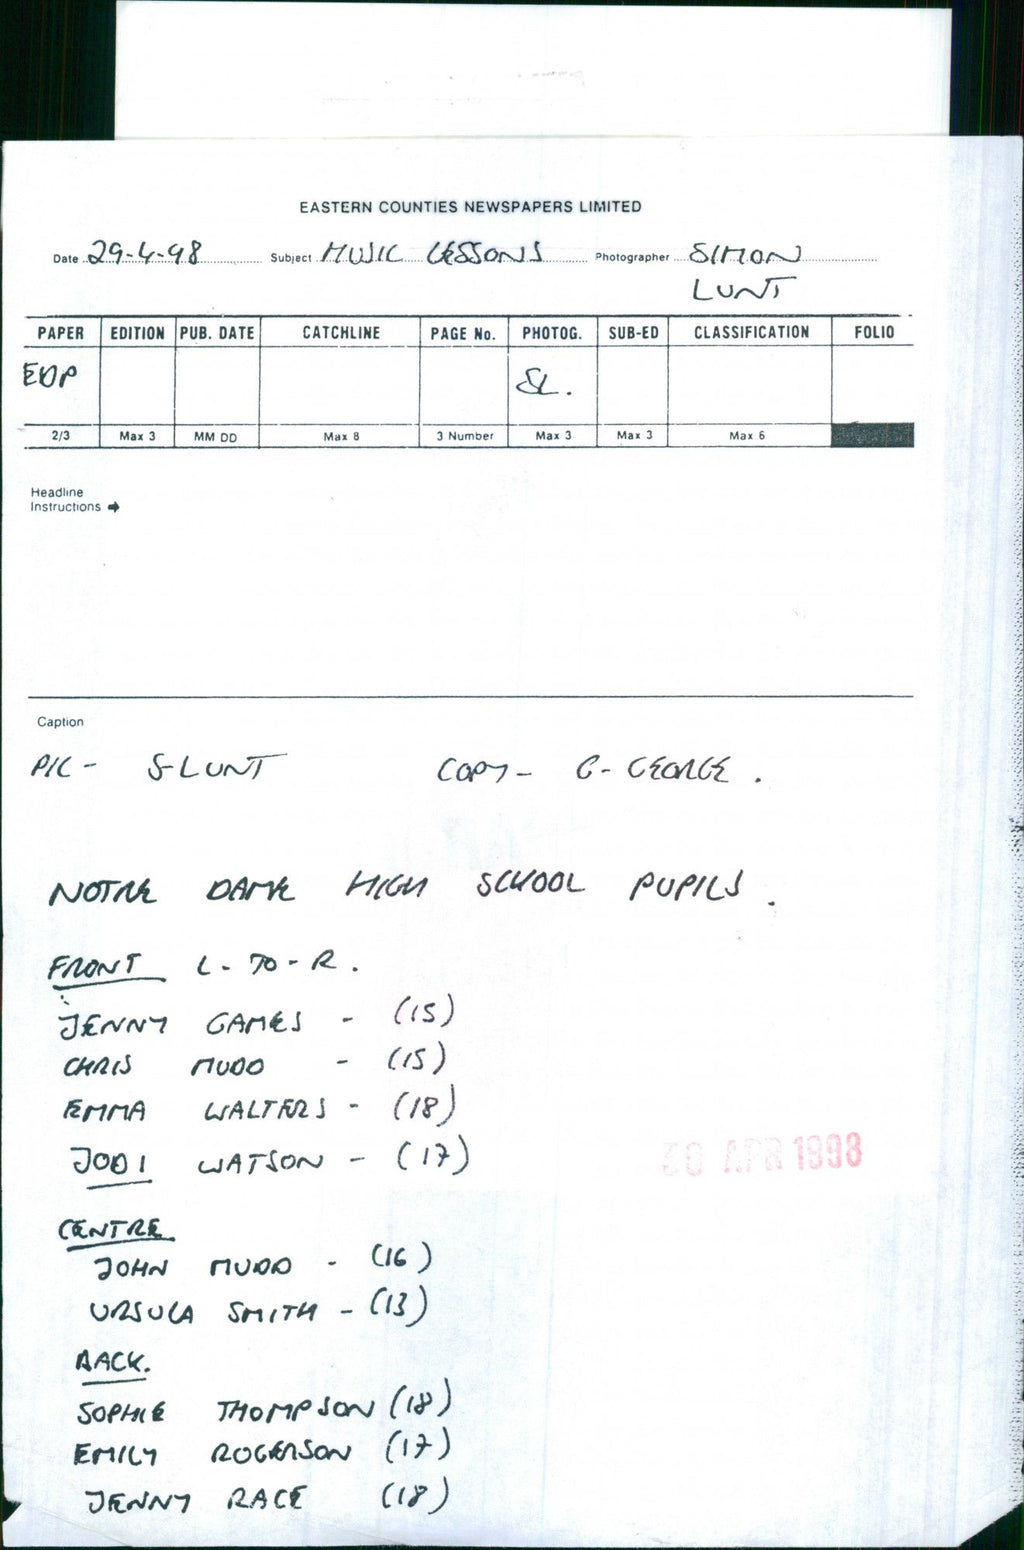 EASTERN COUNTIES NEWSPAPERS LIMITED
Date 29-4-98 Subject MUSIC LESSONS Photographer SIMON
LUNT
PAPER EDITION PUB. DATE CATCHLINE PAGE No. PHOTOG. SUB-ED CLASSIFICATION FOLIO
EDP SL.
2/3 Max 3 MM DD Max 8 3 Number Max 3 Max 3 Max 6
Headline
Instructions ➡
Caption
PIC - S-LUNT COPY - G-GEORGE.
NOTRE DAME HIGH SCHOOL PUPILS.
FRONT L-TO-R.
JENNY GAMES - (15)
CHRIS MUDD - (15)
EMMA WALTERS - (18)
JODI WATSON - (17)
30 APR 1998
CENTRE
JOHN MUDD - (16)
URSULA SMITH - (13)
BACK.
SOPHIE THOMPSON (18)
EMILY ROGERSON (17)
JENNY RACE (18)